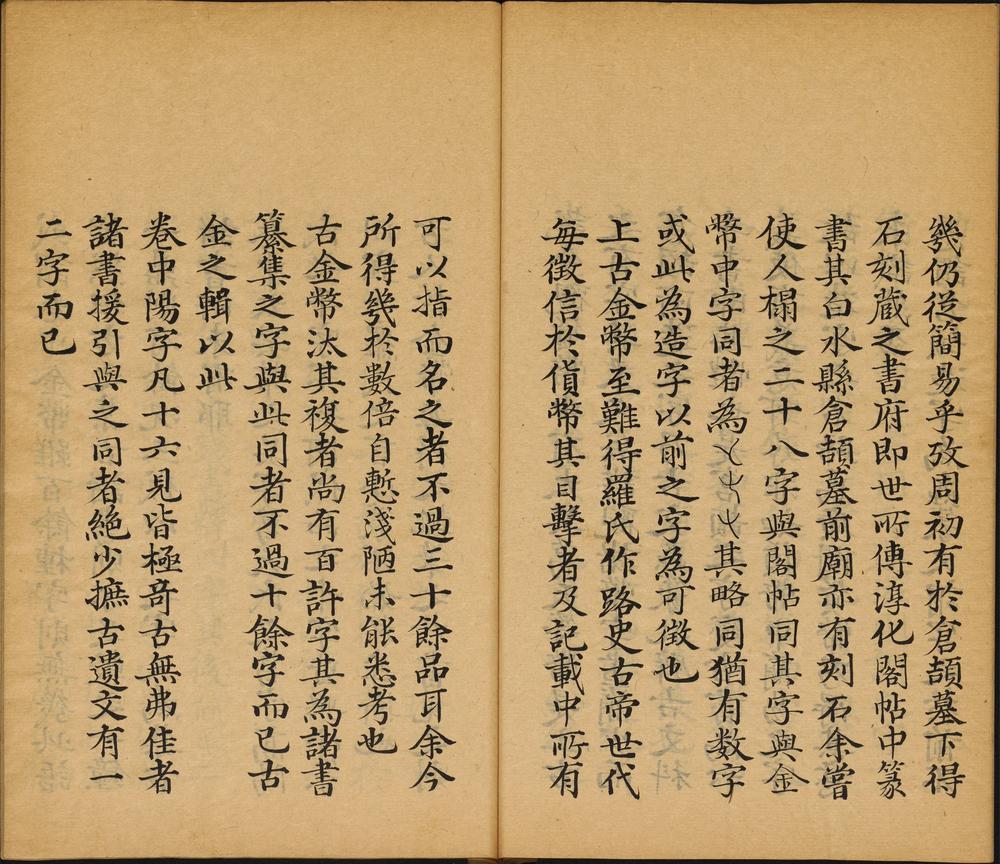 幾仍從簡易乎攷周初有於倉頡墓下得
石刻蔵之書府即世所傳淳化閣帖中篆
書其白水縣倉頡墓前廟亦有刻石余嘗
使人榻之二十八字與閣帖同其字與金
幣中字同者為其略同猶有数字
或此為造字以前之字為可徵也
上古金幣至難得羅氏作路史古帝世代
每徵信於貨幣其目擊者及記載中所有
可以指而名之者不過三十餘品耳余今
所得幾於數倍自慙淺陋未能悉考也
古金幣汰其複者尚有百許字其為諸書
纂集之字與此同者不過十餘字而已古
金之輯以此
卷中陽字凡十六見皆極竒古無弗佳者
諸書援引與之同者絶少摭古遺文有一
二字而已